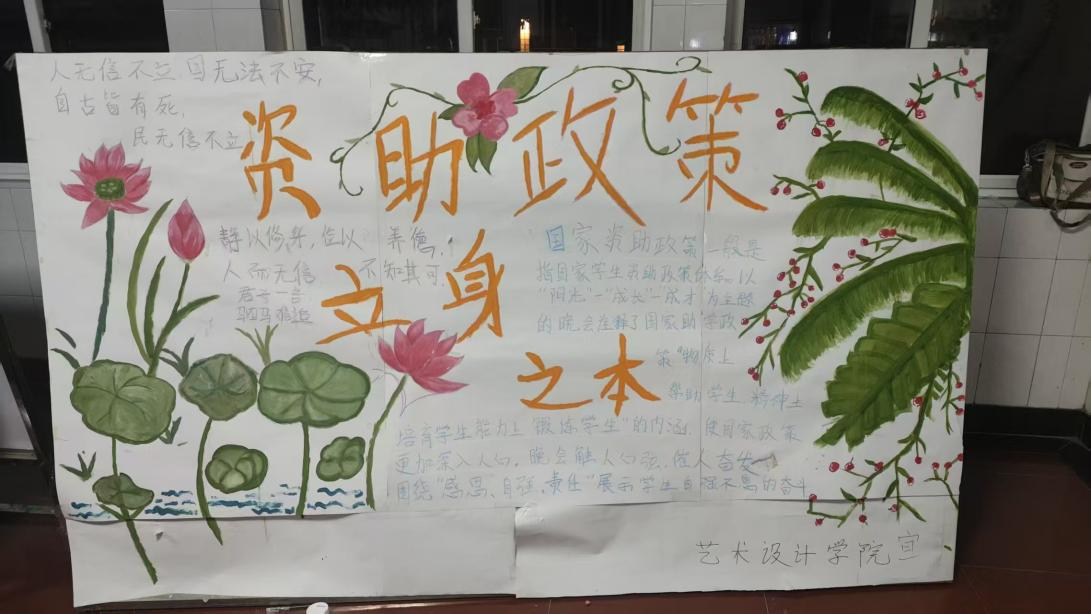 人无信不立,国无法不安,
自古皆有死,
民无信不立
资助政策
静以修身,位以 养德,
人而无信 不知其可,
君子一言
驷马难追
立身
之本
国家资助政策一般是
指国家学生资助政策体系。以
"阳光"-"成长"-成才"为主题
的晚会在释了国家助学政
策"物质上
帮助学生,精神上
培育学生能力上"锻炼学生"的内涵,使国家政策
更加深入人心,晚会触人心弦,催人奋发
围绕"感恩、自强,责任"展示学生自强不息的奋斗
艺术设计学院宣